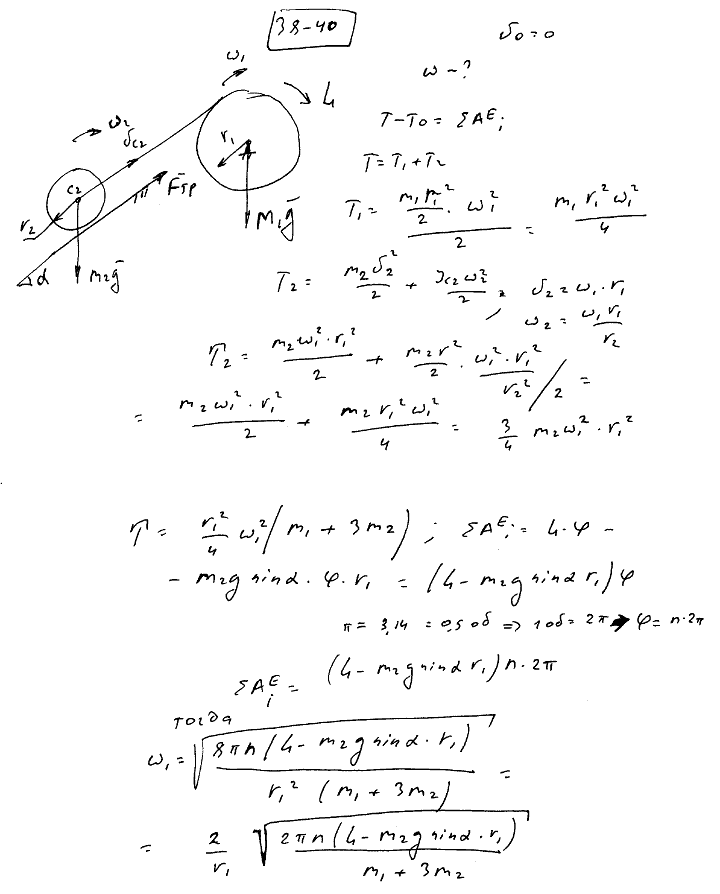 38-40
υ0 = 0
ω - ?
T - T0 = ΣA^E_i
T = T1 + T2
T1 = (m1 r1²/2 · ω1²)/2 = m1 r1² ω1²/4
T2 = m2 υ2²/2 + Jc2 ω2²/2 ; υ2 = ω1 · r1
ω2 = ω1 r1/r2
T2 = m2 ω1² · r1²/2 + m2 r²/2 · ω1² · r1²/r2² / 2 =
= m2 ω1² · r1²/2 + m2 r1² ω1²/4 = 3/4 m2 ω1² · r1²
T = r1²/4 ω1² (m1 + 3m2) ; ΣA^E_i = L · φ -
- m2g sinα · φ · r1 = (L - m2g sinα r1)φ
π = 3,14 = 0,5 об => 1 об = 2π → φ = n · 2π
ΣA^E_i = (L - m2g sinα r1) n · 2π
тогда
ω1 = √(8πn(L - m2g sinα · r1) / r1² (m1 + 3m2)) =
= 2/r1 √(2πn(L - m2g sinα · r1) / m1 + 3m2)
ω1
L
ω2
υc2
r1
c2
Fтр
r2
M1g
α
m2g